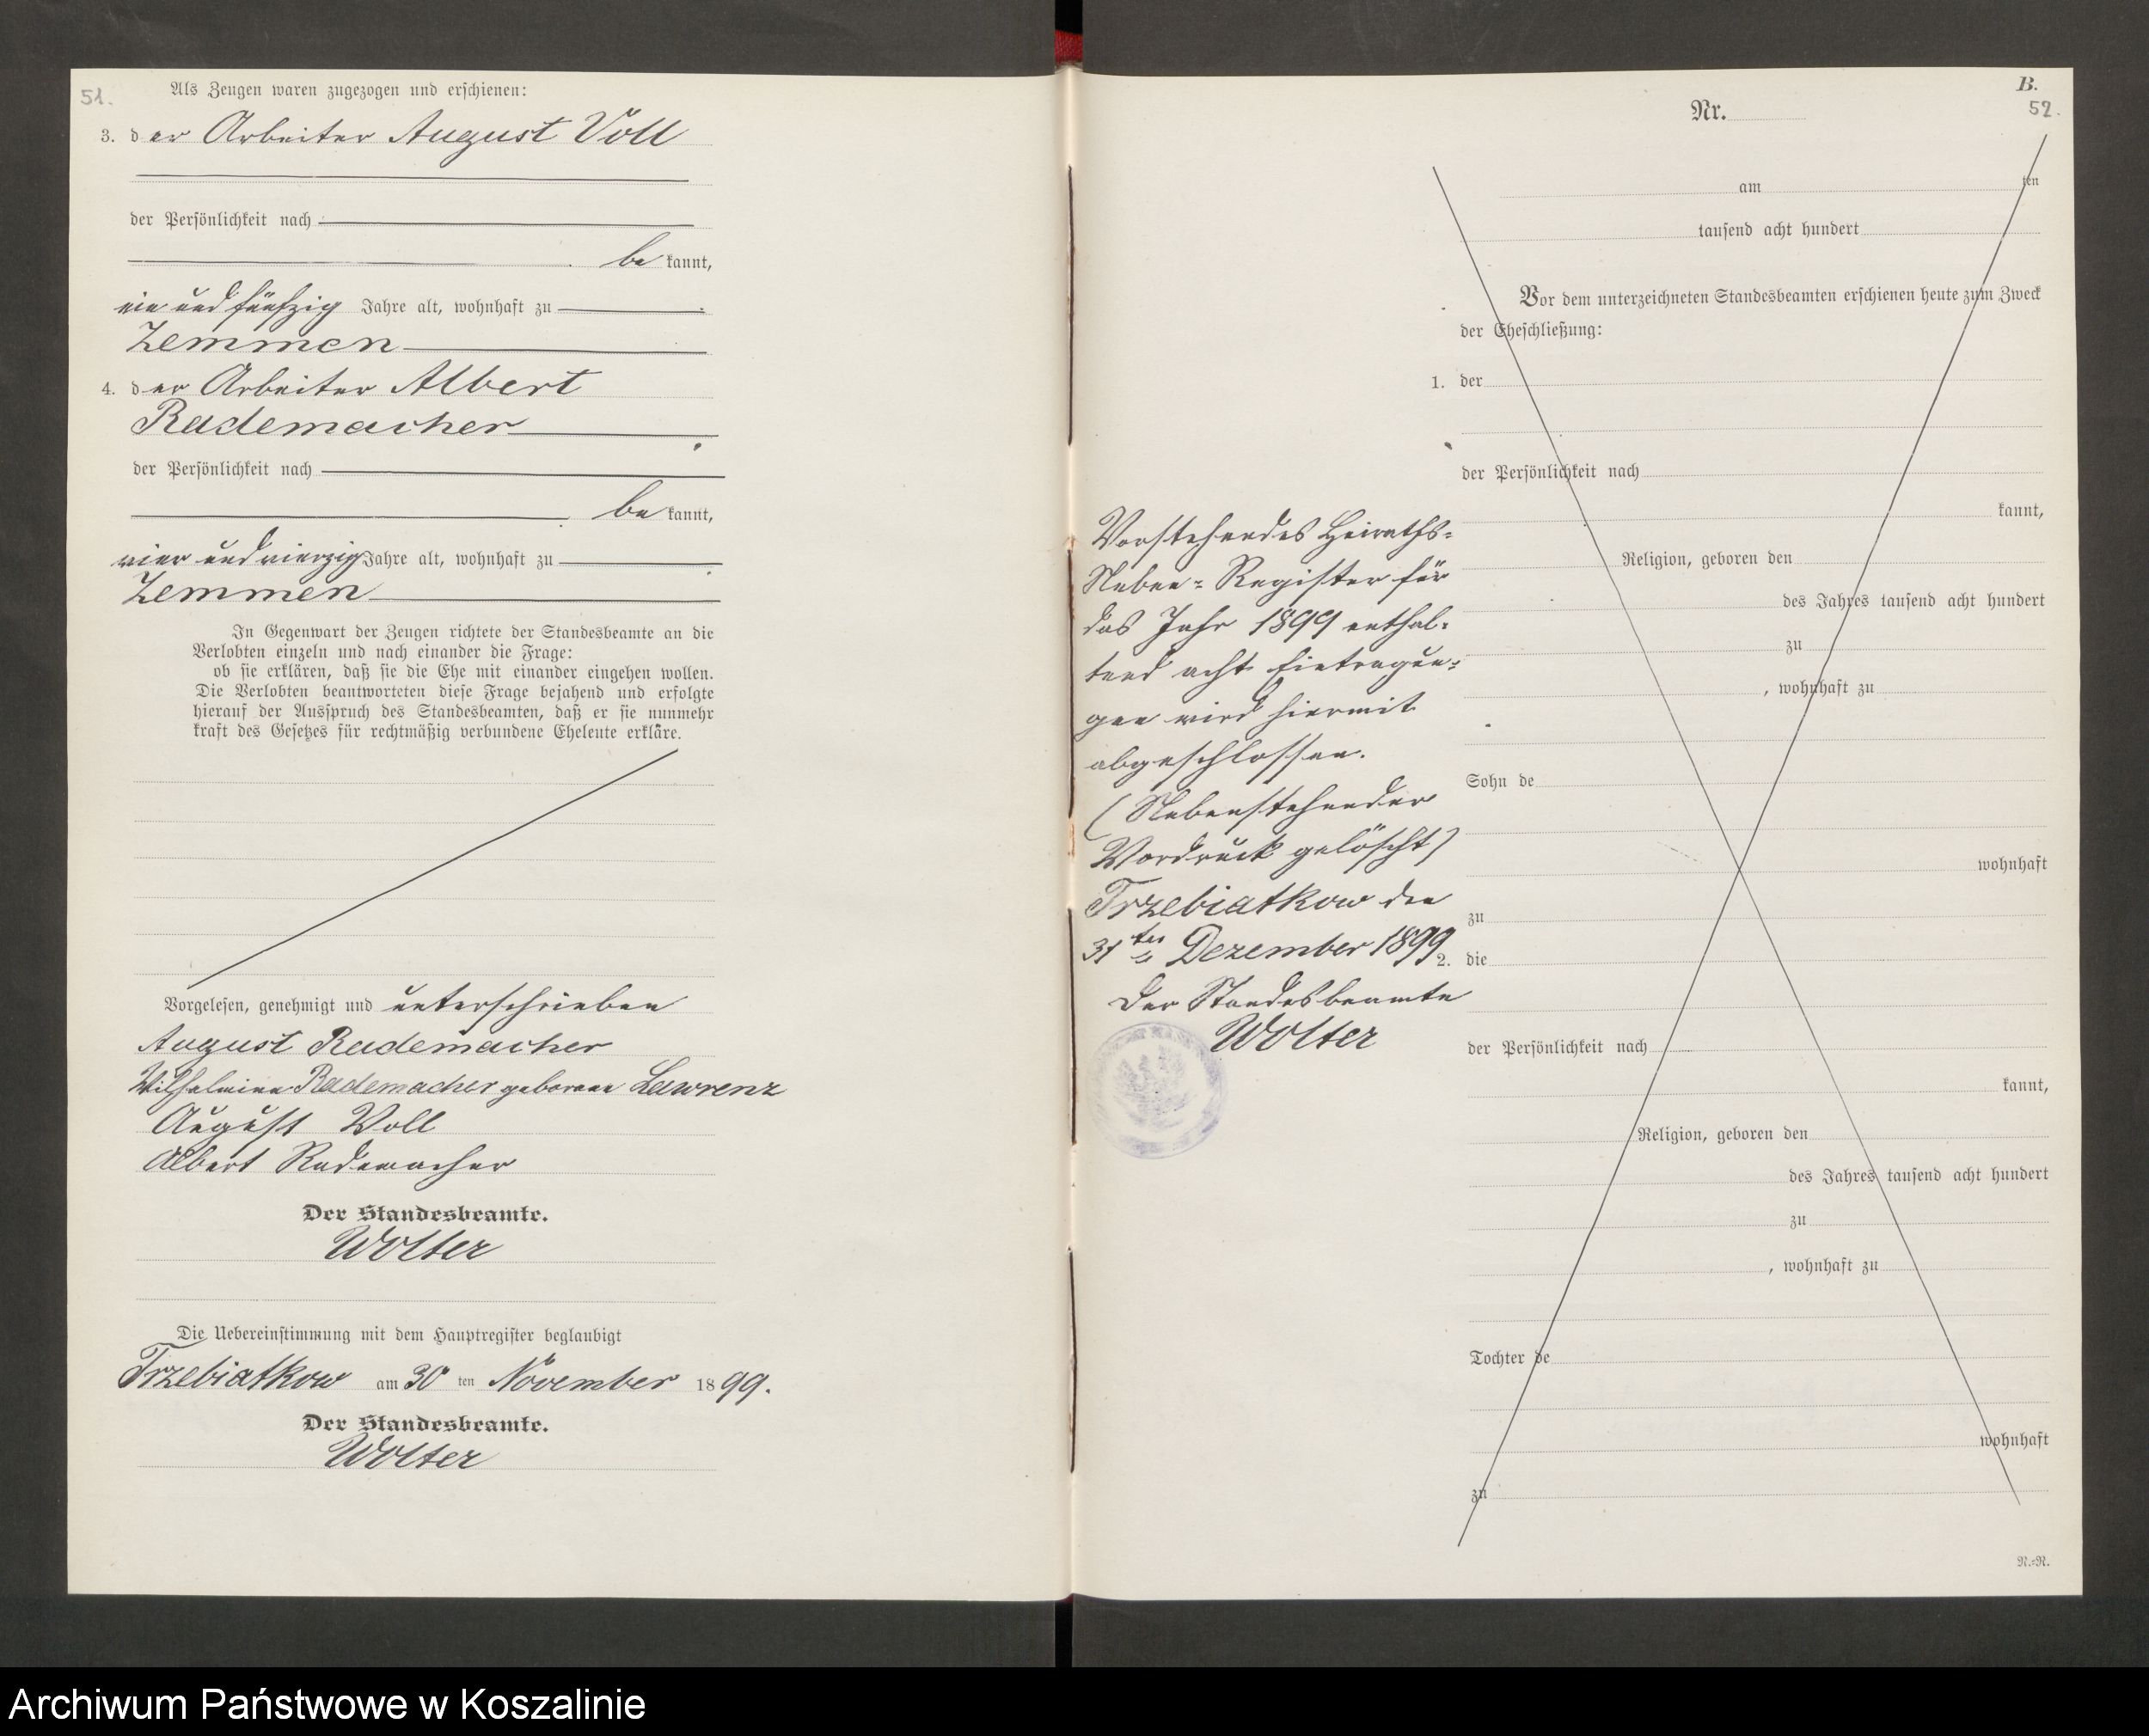 51.
Als Zeugen waren zugezogen und erschienen:
3. der Arbeiter August Voll
der Persönlichkeit nach
bekannt,
ein und fünfzig Jahre alt, wohnhaft zu
Zemmen
4. der Arbeiter Albert
Rademacher
der Persönlichkeit nach
bekannt,
vier und vierzig Jahre alt, wohnhaft zu
Zemmen
In Gegenwart der Zeugen richtete der Standesbeamte an die
Verlobten einzeln und nach einander die Frage:
ob sie erklären, daß sie die Ehe mit einander eingehen wollen.
Die Verlobten beantworteten diese Frage bejahend und erfolgte
hierauf der Ausspruch des Standesbeamten, daß er sie nunmehr
kraft des Gesetzes für rechtmäßig verbundene Eheleute erkläre.
Vorgelesen, genehmigt und unterschrieben
August Rademacher
Wilhelmine Rademacher geborene Lawrenz
August Voll
Albert Rademacher
Der Standesbeamte.
Wolter
Die Uebereinstimmung mit dem Hauptregister beglaubigt
Trzebiatkow am 30 ten November 1899.
Der Standesbeamte.
Wolter
Vorstehendes Heiraths-
Neben-Register für
das Jahr 1899 enthal-
tend acht Eintragun-
gen wird hiermit
abgeschlossen.
(Nebenstehender
Vordruck gelöscht)
Trzebiatkow den
31ten Dezember 1899
Der Standesbeamte
Wolter
B.
Nr.
52.
am ten
tausend acht hundert
Vor dem unterzeichneten Standesbeamten erschienen heute zum Zweck
der Eheschließung:
1. der
der Persönlichkeit nach
kannt,
Religion, geboren den
des Jahres tausend acht hundert
zu
, wohnhaft zu
Sohn de
wohnhaft
zu
2. die
der Persönlichkeit nach
kannt,
Religion, geboren den
des Jahres tausend acht hundert
zu
, wohnhaft zu
Tochter de
wohnhaft
zu
N.-R.
Archiwum Państwowe w Koszalinie